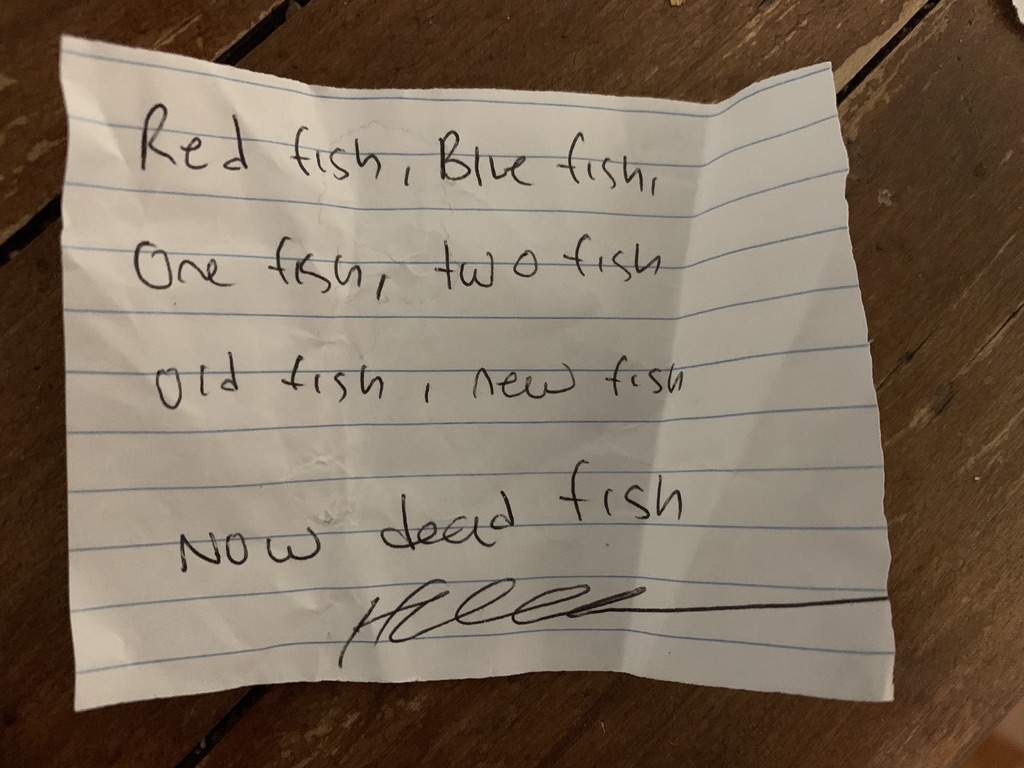 Red fish, Blue fish,
One fish, two fish
Old fish, new fish
Now dead fish